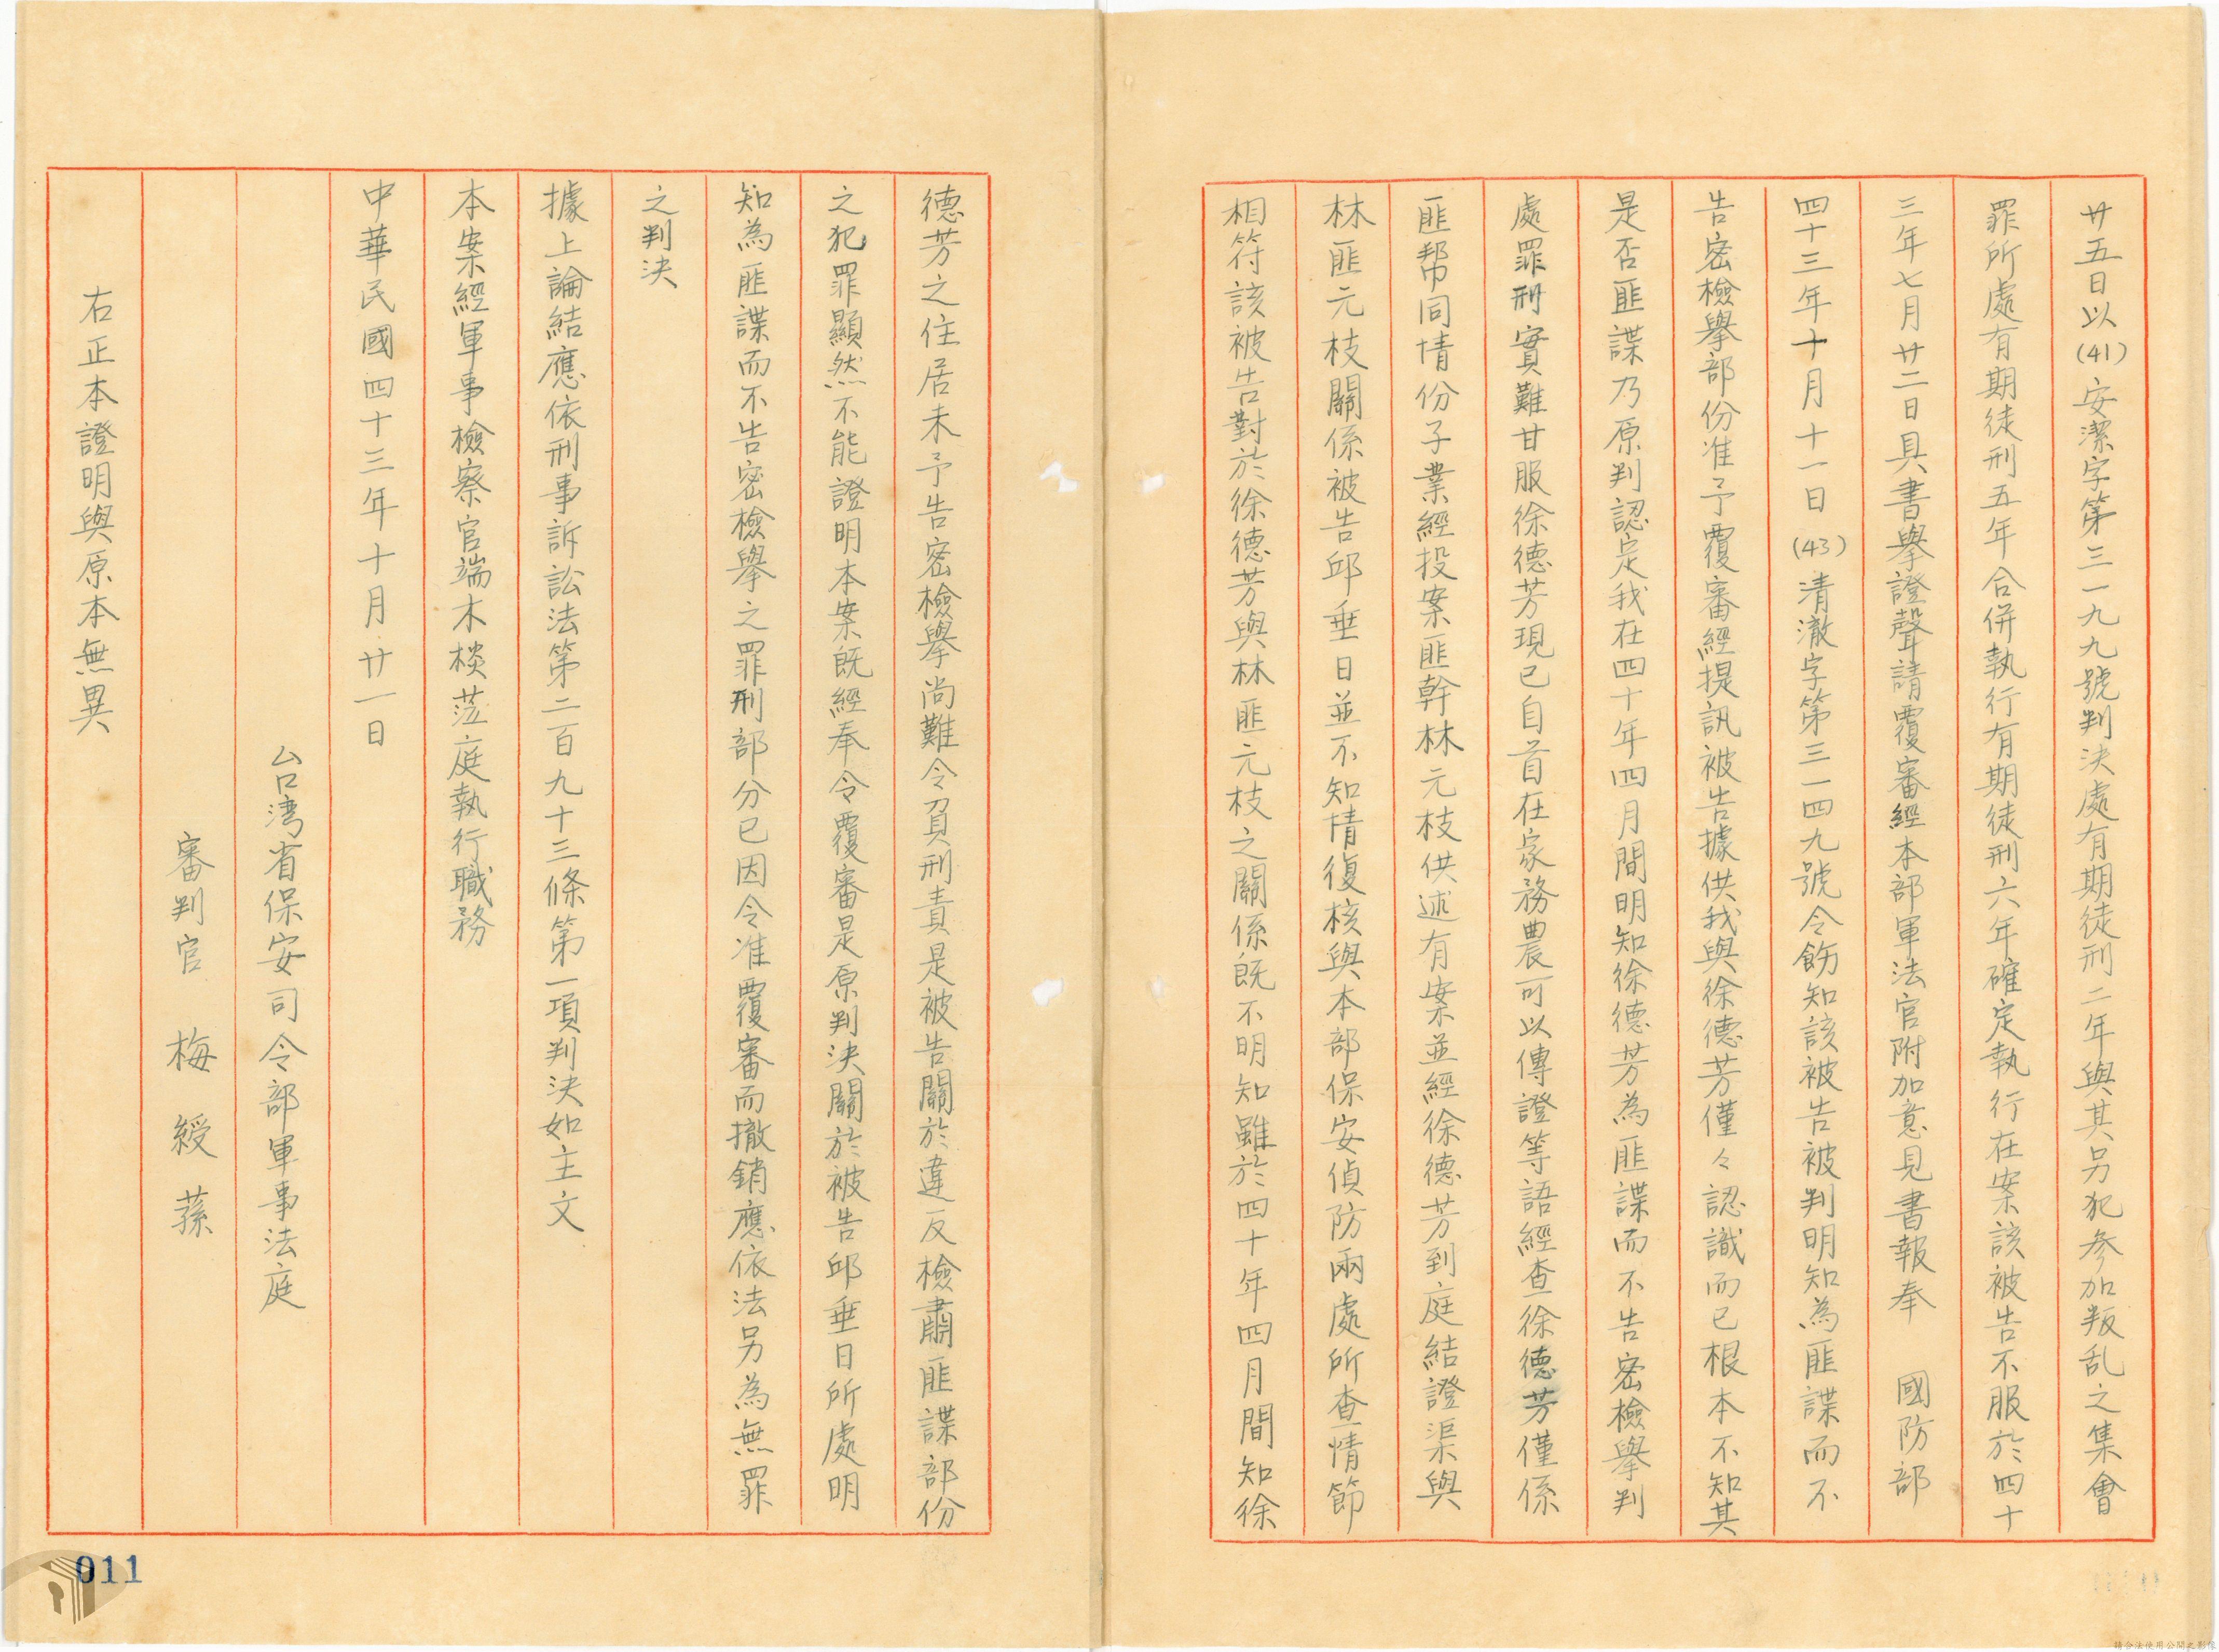 廿五日以(41)安潔字第三一九九號判決處有期徒刑二年與其另犯參加叛乱之集會
罪所處有期徒刑五年合併執行有期徒刑六年確定執行在案該被告不服於四十
三年七月廿二日具書舉證聲請覆審經本部軍法官附加意見書報奉　國防部
四十三年十月十一日(43)清澈字第三一四九號令飭知該被告被判明知為匪諜而不
告密檢舉部份准予覆審經提訊被告據供我與徐德芳僅々認識而已根本不知其
是否匪諜乃原判認定我在四十年四月間明知徐德芳為匪諜而不告密檢舉判
處罪刑實難甘服徐德芳現已自首在家務農可以傳證等語經查徐德芳僅係
匪幫同情份子業經投案匪幹林元枝供述有案並經徐德芳到庭結證渠與
林匪元枝關係被告邱垂日並不知情復核與本部保安偵防兩處所查情節
相符該被告對於徐德芳與林匪元枝之關係既不明知雖於四十年四月間知徐
德芳之住居未予告密檢舉尚難令負刑責是被告關於違反檢肅匪諜部份
之犯罪顯然不能證明本案既經奉令覆審是原判決關於被告邱垂日所處明
知為匪諜而不告密檢舉之罪刑部分已因令准覆審而撤銷應依法另為無罪
之判決
據上論結應依刑事訴訟法第二百九十三條第一項判決如主文
本案經軍事檢察官端木棪蒞庭執行職務
中華民國四十三年十月廿一日
台湾省保安司令部軍事法庭
審判官　梅綬蓀
右正本證明與原本無異
011
請合法使用公開之影像